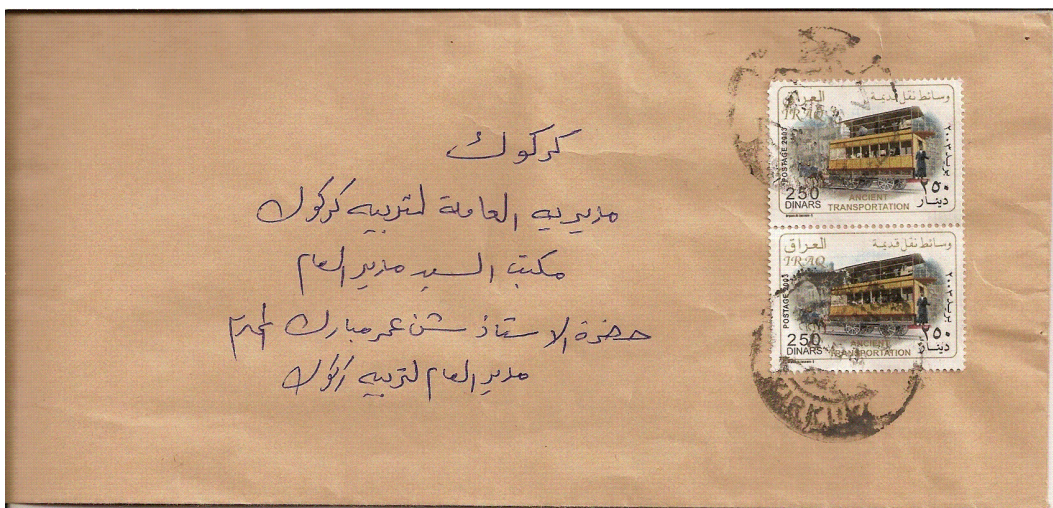 كركوك
مديريه العامة لتربيه كركوك
مكتب السيد مدير العام
حضرة الاستاذ شن عمر مبارك المحترم
مدير العام لتربيه كركوك
وسائط نقل قديمة
العراق
IRAQ
POSTAGE 2003
بريد ٢٠٠٣
250
DINARS
٢٥٠
دينار
ANCIENT
TRANSPORTATION
وسائط نقل قديمة
العراق
IRAQ
POSTAGE 2003
بريد ٢٠٠٣
250
DINARS
٢٥٠
دينار
ANCIENT
TRANSPORTATION
KIRKUK